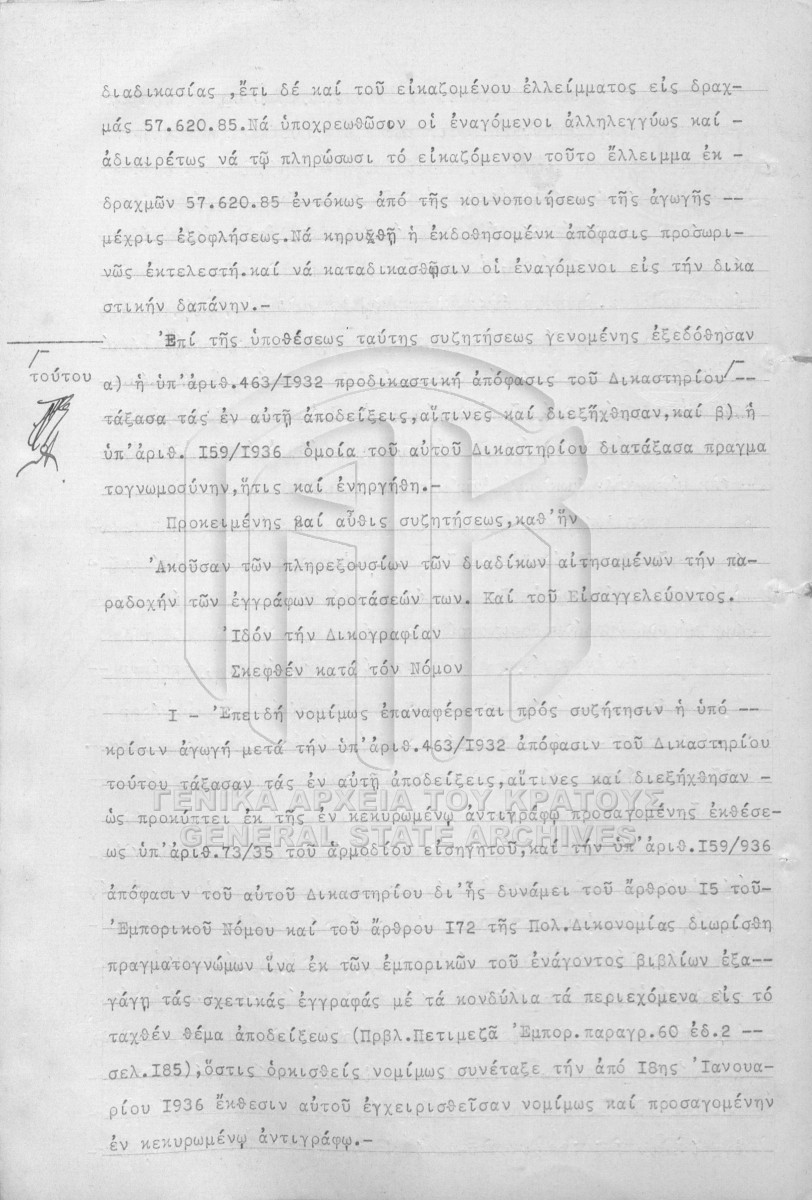 διαδικασίας ,ἔτι δέ καί τοῦ εἰκαζομένου ἐλλείμματος εἰς δραχ-
μάς 57.620.85.Νά ὑποχρεωθῶσον οἱ ἐναγόμενοι ἀλληλεγγύως καί -
ἀδιαιρέτως νά τῷ πληρώσωσι τό εἰκαζόμενον τοῦτο ἔλλειμμα ἐκ -
δραχμῶν 57.620.85 ἐντόκως ἀπό τῆς κοινοποιήσεως τῆς ἀγωγῆς --
μέχρις ἐξοφλήσεως.Νά κηρυχθῇ ἡ ἐκδοθησομένκ ἀπόφασις προσωρι-
νῶς ἐκτελεστή.καί νά καταδικασθῶσιν οἱ ἐναγόμενοι εἰς τήν δικα
στικήν δαπάνην.-
Ἐπί τῆς ὑποθέσεως ταύτης συζητήσεως γενομένης ἐξεδόθησαν
τούτου
α) ἡ ὑπ'ἀριθ.463/I932 προδικαστική ἀπόφασις τοῦ Δικαστηρίου --
τάξασα τάς ἐν αὐτῇ ἀποδείξεις,αἵτινες καί διεξήχθησαν,καί β) ἡ
ὑπ'ἀριθ. I59/I936 ὁμοία τοῦ αὐτοῦ Δικαστηρίου διατάξασα πραγμα
τογνωμοσύνην,ἥτις καί ἐνηργήθη.-
Προκειμένης καί αὖθις συζητήσεως,καθ'ἥν
Ἀκοῦσαν τῶν πληρεξουσίων τῶν διαδίκων αἰτησαμένων τήν πα-
ραδοχήν τῶν ἐγγράφων προτάσεών των. Καί τοῦ Εἰσαγγελεύοντος.
Ἰδόν τήν Δικογραφίαν
Σκεφθέν κατά τόν Νόμον
I - Ἐπειδή νομίμως ἐπαναφέρεται πρός συζήτησιν ἡ ὑπό --
κρίσιν ἀγωγή μετά τήν ὑπ'ἀριθ.463/I932 ἀπόφασιν τοῦ Δικαστηρίου
τούτου τάξασαν τάς ἐν αὐτῇ ἀποδείξεις,αἵτινες καί διεξήχθησαν -
ΓΕΝΙΚΑ ΑΡΧΕΙΑ ΤΟΥ ΚΡΑΤΟΥΣ
ὡς προκύπτει ἐκ τῆς ἐν κεκυρωμένῳ ἀντιγράφῳ προσαγομένης ἐκθέσε-
GENERAL STATE ARCHIVES
ως ὑπ'ἀριθ.73/35 τοῦ ἁρμοδίου εἰσηγητοῦ,καί τήν ὑπ'ἀριθ.I59/936
ἀπόφασιν τοῦ αὐτοῦ Δικαστηρίου δι'ἧς δυνάμει τοῦ ἄρθρου I5 τοῦ-
Ἐμπορικοῦ Νόμου καί τοῦ ἄρθρου I72 τῆς Πολ.Δικονομίας διωρίσθη
πραγματογνώμων ἵνα ἐκ τῶν ἐμπορικῶν τοῦ ἐνάγοντος βιβλίων ἐξα--
γάγῃ τάς σχετικάς ἐγγραφάς μέ τά κονδύλια τά περιεχόμενα εἰς τό
ταχθέν θέμα ἀποδείξεως (Πρβλ.Πετιμεζᾶ Ἐμπορ.παραγρ.60 ἐδ.2 --
σελ.I85),ὅστις ὁρκισθείς νομίμως συνέταξε τήν ἀπό I8ης Ἰανουα-
ρίου I936 ἔκθεσιν αὐτοῦ ἐγχειρισθεῖσαν νομίμως καί προσαγομένην
ἐν κεκυρωμένῳ ἀντιγράφῳ.-